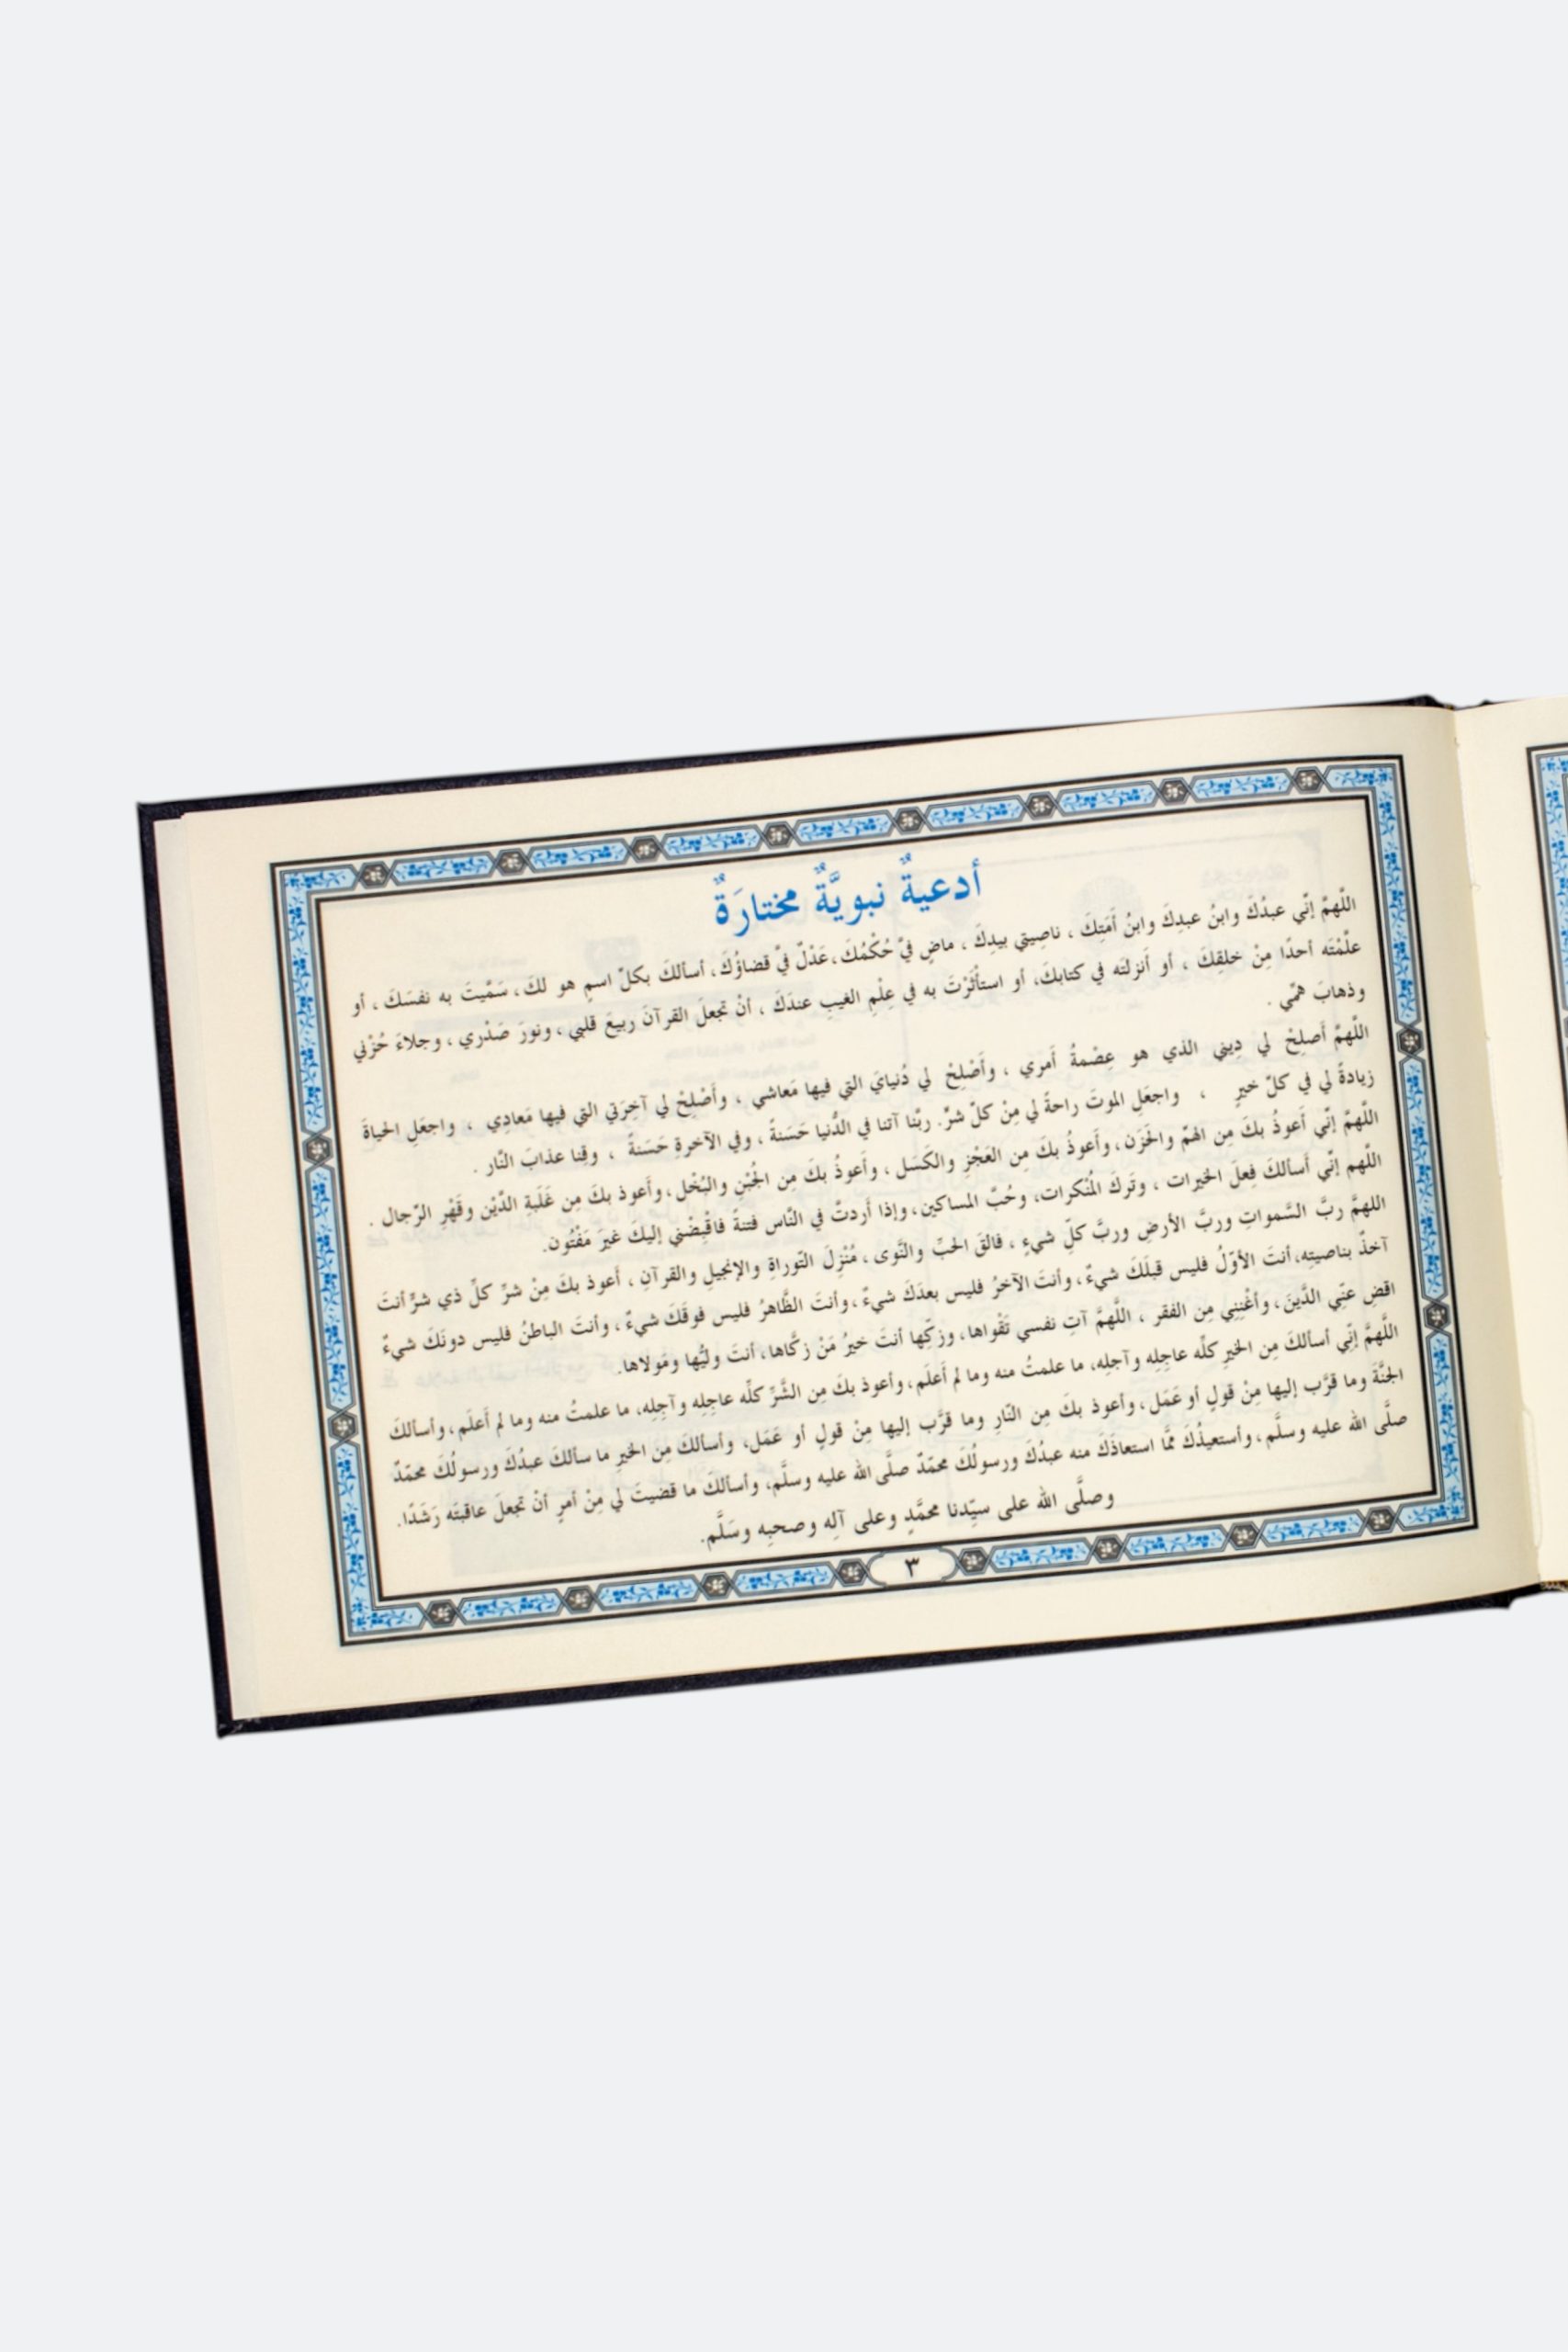 أدعيةٌ نبويَّةٌ مختارَةٌ
اللّهمّ إنّي عبدُكَ وابنُ عبدِكَ وابنُ أَمَتِكَ ، ناصِيتي بيدِكَ ، ماضٍ فيّ حُكْمُكَ، عَدْلٌ فيّ قضاؤُكَ، أسألكَ بكلّ اسمٍ هو لكَ، سَمّيتَ به نفسَكَ ، أو
علّمْتَه أحدًا مِنْ خلقِكَ ، أو أَنزلتَه في كتابكَ، أو استأْثَرْتَ به في عِلْمِ الغيبِ عندَكَ ، أنْ تجعلَ القرآنَ ربيعَ قلبي ، ونورَ صَدْري ، وجلاءَ حُزْني
وذهابَ همّي .
اللّهمّ أَصلِحْ لي دِيني الذي هو عِصْمةُ أَمري ، وأَصْلِحْ لي دُنيايَ التي فيها مَعاشي ، وأَصْلِحْ لي آخِرَتي التي فيها مَعادِي ، واجعَلِ الحياةَ
زيادةً لي في كلّ خيرٍ ، واجعَلِ الموتَ راحةً لي مِنْ كلّ شرٍّ. ربّنا آتنا في الدُّنيا حَسَنةً ، وفي الآخرةِ حَسَنةً ، وقِنا عذابَ النّار .
اللّهمّ إنّي أَعوذُ بكَ مِن الهمّ والحَزَن، وأَعوذُ بكَ مِن العَجْزِ والكَسَل ، وأَعوذُ بكَ مِن الجُبْنِ والبُخْل، وأَعوذ بكَ مِن غَلَبةِ الدَّيْن وقَهْرِ الرّجال .
اللّهم إنّي أَسألكَ فِعلَ الخيرات ، وتَركَ المُنْكرات، وحُبَّ المساكين، وإذا أَردتْ في النّاس فتنةً فاقْبِضْني إليكَ غيرَ مَفْتُون.
اللهمَّ ربَّ السَّمواتِ وربَّ الأرضِ وربَّ كلِّ شيءٍ ، فالقَ الحبِّ والنَّوى، مُنْزِلَ التّوراةِ والإنجيلِ والقرآنِ ، أَعوذ بكَ مِنْ شرِّ كلِّ ذي شرٍّ أنتَ
آخذٌ بناصيتِه، أنتَ الأوّلُ فليس قبلَكَ شيءٌ، وأنتَ الآخرُ فليس بعدَكَ شيءٌ، وأنتَ الظَّاهرُ فليس فوقَكَ شيءٌ، وأنتَ الباطنُ فليس دونَكَ شيءٌ
اقضِ عنّي الدَّينَ، وأغْنِنِي مِن الفقر ، اللَّهمَّ آتِ نفسي تَقْواها، وزكِّها أنتَ خيرُ مَنْ زكَّاها، أنتَ وليُّها ومَولاها.
اللَّهمَّ إنّي أسألكَ مِن الخيرِ كلِّه عاجِلِه وآجلِه، ما علمتُ منه وما لم أَعلَم، وأعوذ بكَ مِن الشَّرِّ كلِّه عاجلِه وآجِلِه، ما علمتُ منه وما لم أَعلَم، وأسألكَ
الجنَّةَ وما قرَّب إليها مِنْ قولٍ أو عَمَل، وأعوذ بكَ مِن النّارِ وما قرَّب إليها مِنْ قولٍ أو عَمَل، وأسألكَ مِن الخيرِ ما سألكَ عبدُكَ ورسولُكَ محمّدٌ
صلَّى الله عليه وسلَّم، وأستعيذُكَ ممَّا استعاذَكَ منه عبدُكَ ورسولُكَ محمّدٌ صلَّى الله عليه وسلَّم، وأسألكَ ما قضيتَ لي مِنْ أمرٍ أنْ تجعلَ عاقبتَه رَشَدًا.
وصلَّى الله على سيّدنا محمَّدٍ وعلى آلِه وصحبِه وسَلَّم.
٣